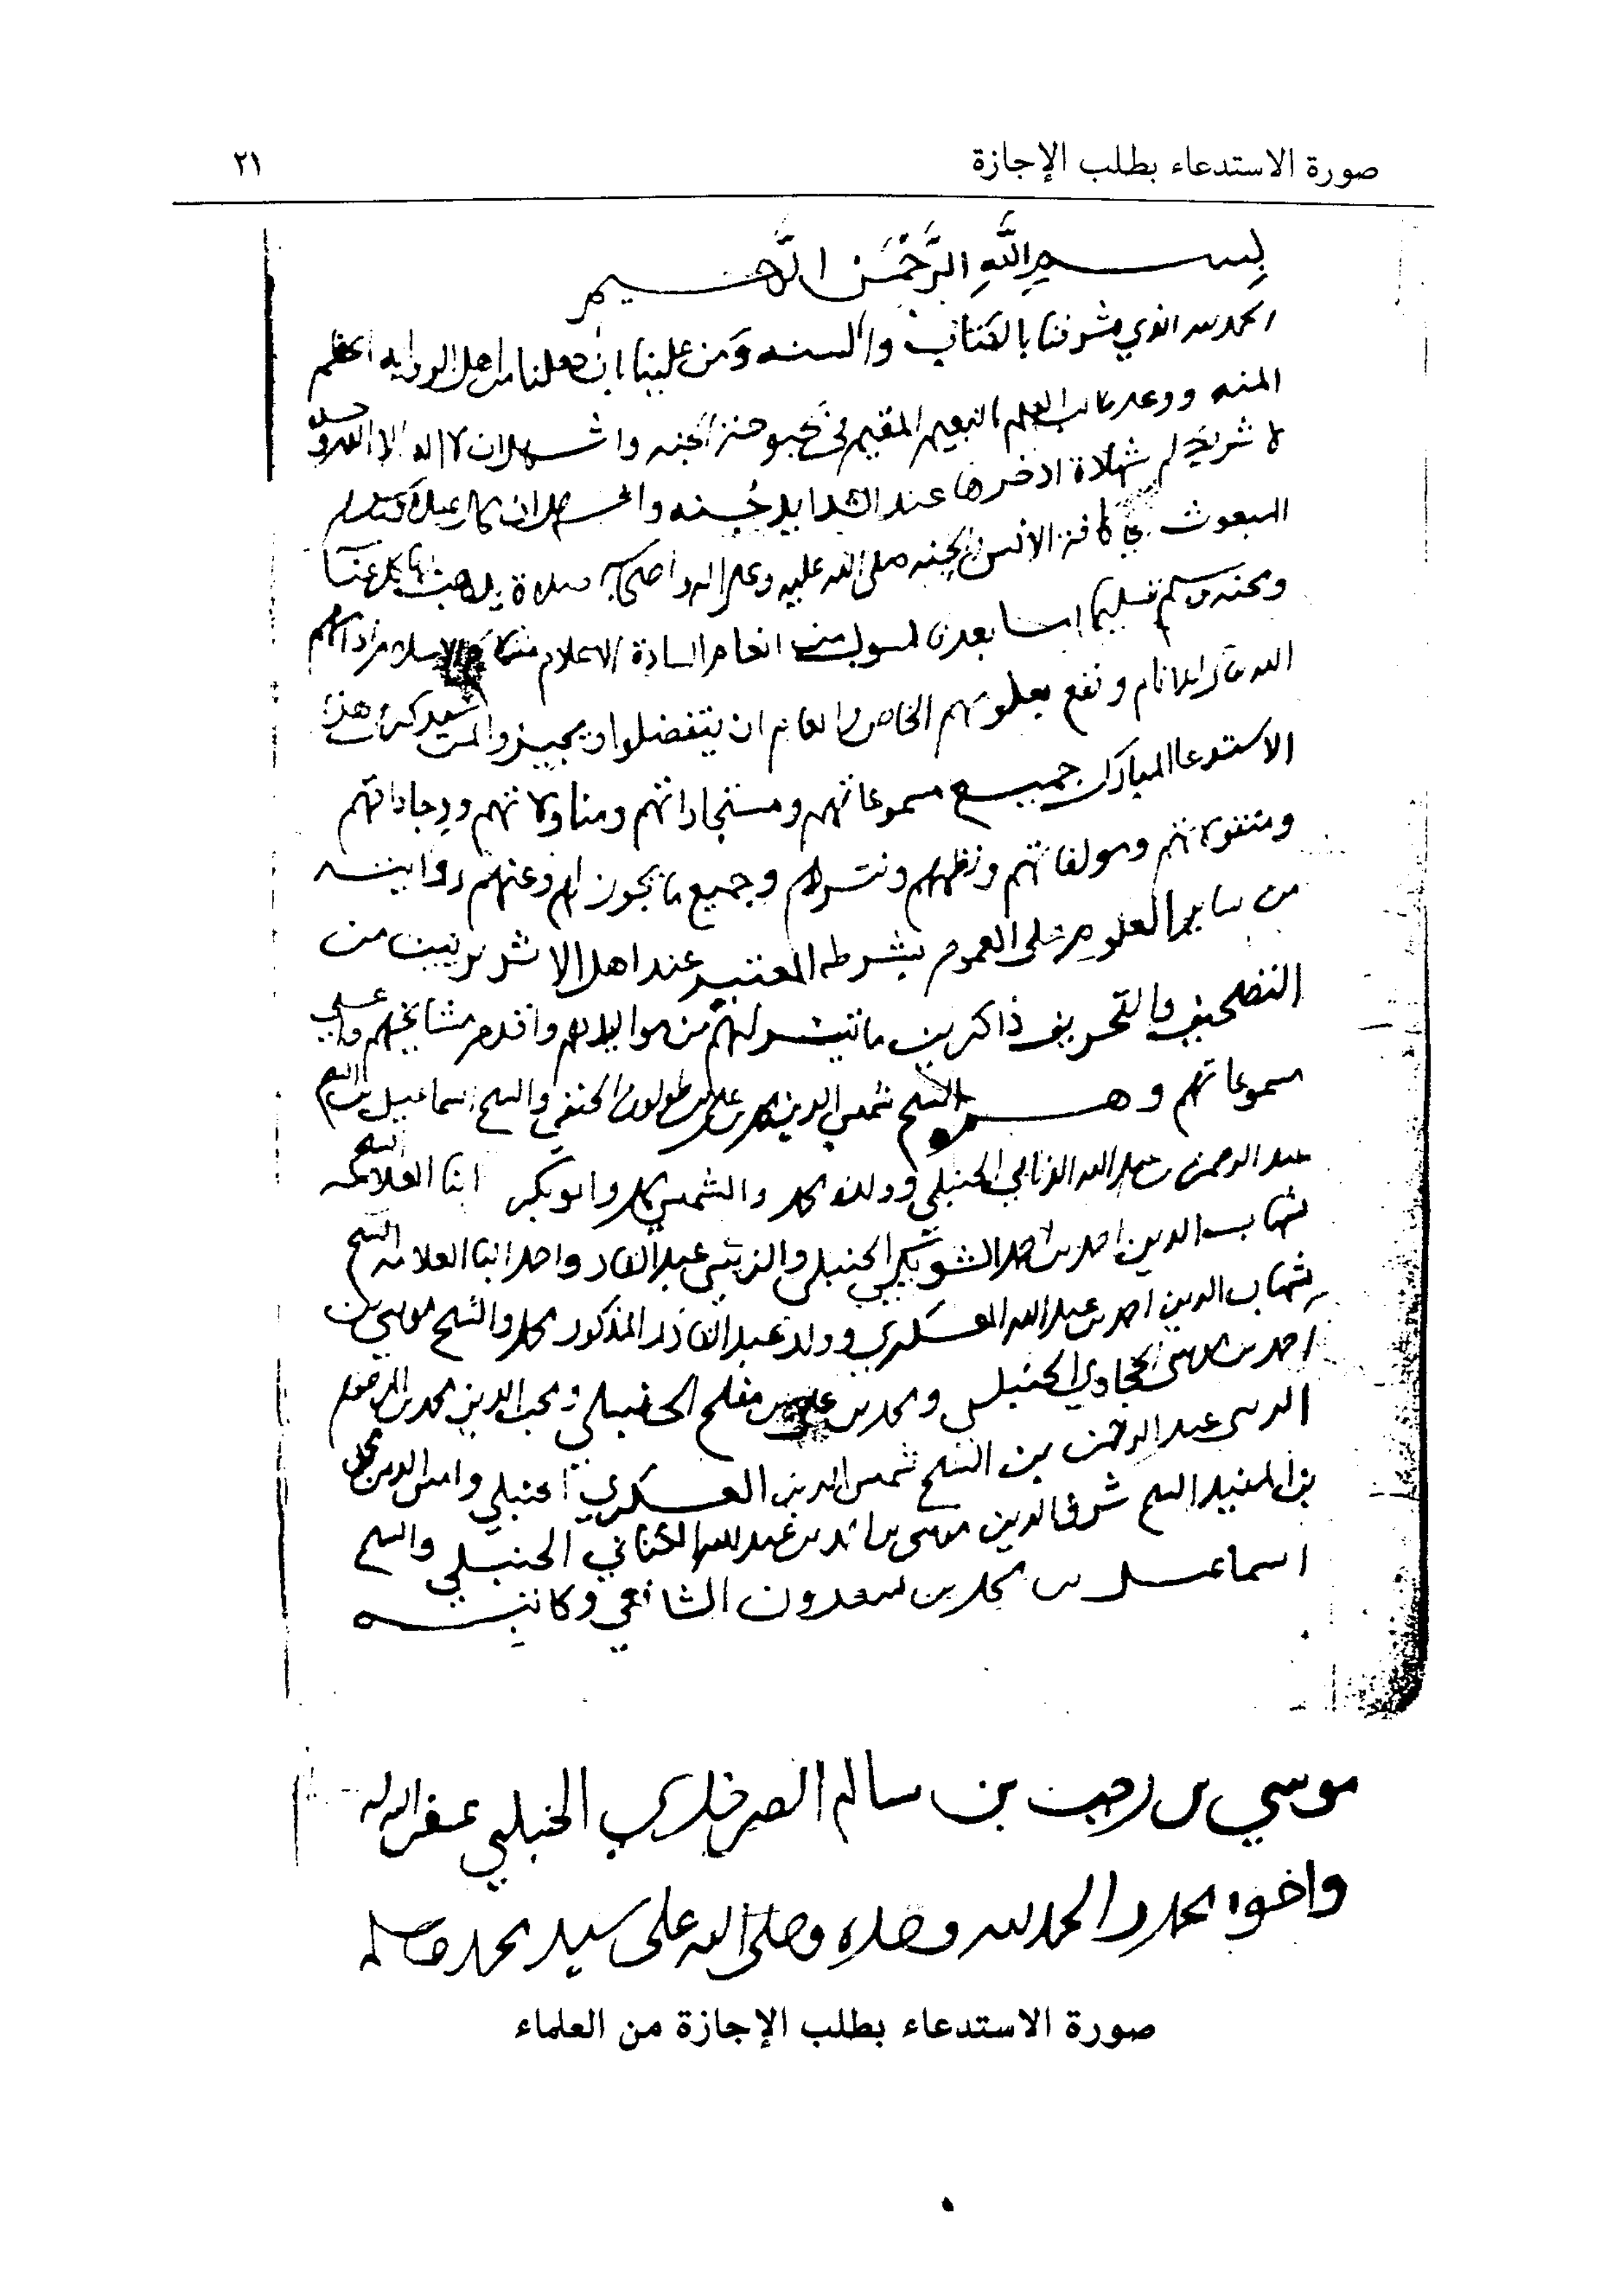 صورة الاستدعاء بطلب الإجازة
٢١
بِسم اللَّهِ الرَّحْمَن الرَّحيم
الحمد لله الذي شرفنا بالكتاب والسنه وَمن علينا ان جعلنا من اهل الروايه اعظم
المنه ووعد طالب العلم النعيم المقيم في بحبوحة الجنه واشهد ان لا اله الا الله وحده
لا شريك له شهادة ادخرها عند الشدايد جُنه واشهد ان محمدا عبده
المبعوث الى كافة الانس والجنه صلى الله عليه وعلى اله واصحابه صلاة يذهب بها كل عنا
ومحنه وسلم تسليما اما بعد فالمسول من انعام السادة الاعلام مشايخ الاسلام
الله تعالى للانام ونفع بعلومهم الخاص والعام ان يتفضلوا ويجيزوا لمن هذا
الاستدعا المبارك جميع مسموعاتهم ومستجازاتهم ومناولاتهم ووجاداتهم
ومنقولاتهم ومولفاتهم ونظمهم ونثرهم وجميع ما يجوز لهم وعنهم روايته
من ساير العلوم على العموم بشرطه المعتبر عند اهل الاثر بريئين من
التصحيف والتحريف ذاكرين ما تيسر لهم من مواليدهم واقدم مشايخهم واعلى
مسموعاتهم وهم الشيخ شمس الدين محمد بن علي بن طولون الحنفي والشيخ اسماعيل بن الشيخ
عبد الرحمن بن عبد الله الحنبلي وولده محمد والشمس محمد وابو بكر ابنا العلامه الشيخ
شهاب الدين احمد بن احمد الشويكي الحنبلي والزيني عبد القادر واحمد ابنا العلامه الشيخ
شهاب الدين احمد بن عبد الله العسكري وولد عبد القادر المذكور محمد والشيخ موسى بن
احمد بن موسى الحجاوي الحنبلي ومحمد بن علي بن مفلح الحنبلي ومحب الدين محمد بن المرحوم
عبد الرحمن بن الشيخ شمس الدين العسكري الحنبلي وامين الدين محمد
بن المفيد الشيخ شرف الدين موسى بن عبد الله الكناني الحنبلي والشيخ
اسماعيل بن محمد بن سعدون الشافعي وكاتبه
موسي بن رجب بن سالم الحنبلي غفر الله له
واخوه محمد والحمد لله وحده وصلى الله على سيد محمد
صورة الاستدعاء بطلب الإجازة من العلماء